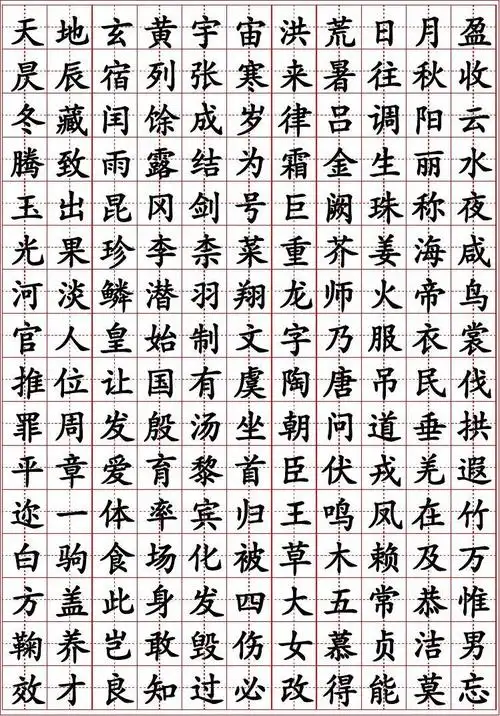 天地玄黄宇宙洪荒日月盈
昃辰宿列张寒来暑往秋收
冬藏闰馀成岁律吕调阳云
腾致雨露结为霜金生丽水
玉出昆冈剑号巨阙珠称夜
光果珍李柰菜重芥姜海咸
河淡鳞潜羽翔龙师火帝鸟
官人皇始制文字乃服衣裳
推位让国有虞陶唐吊民伐
罪周发殷汤坐朝问道垂拱
平章爱育黎首臣伏戎羌遐
迩一体率宾归王鸣凤在竹
白驹食场化被草木赖及万
方盖此身发四大五常恭惟
鞠养岂敢毁伤女慕贞洁男
效才良知过必改得能莫忘